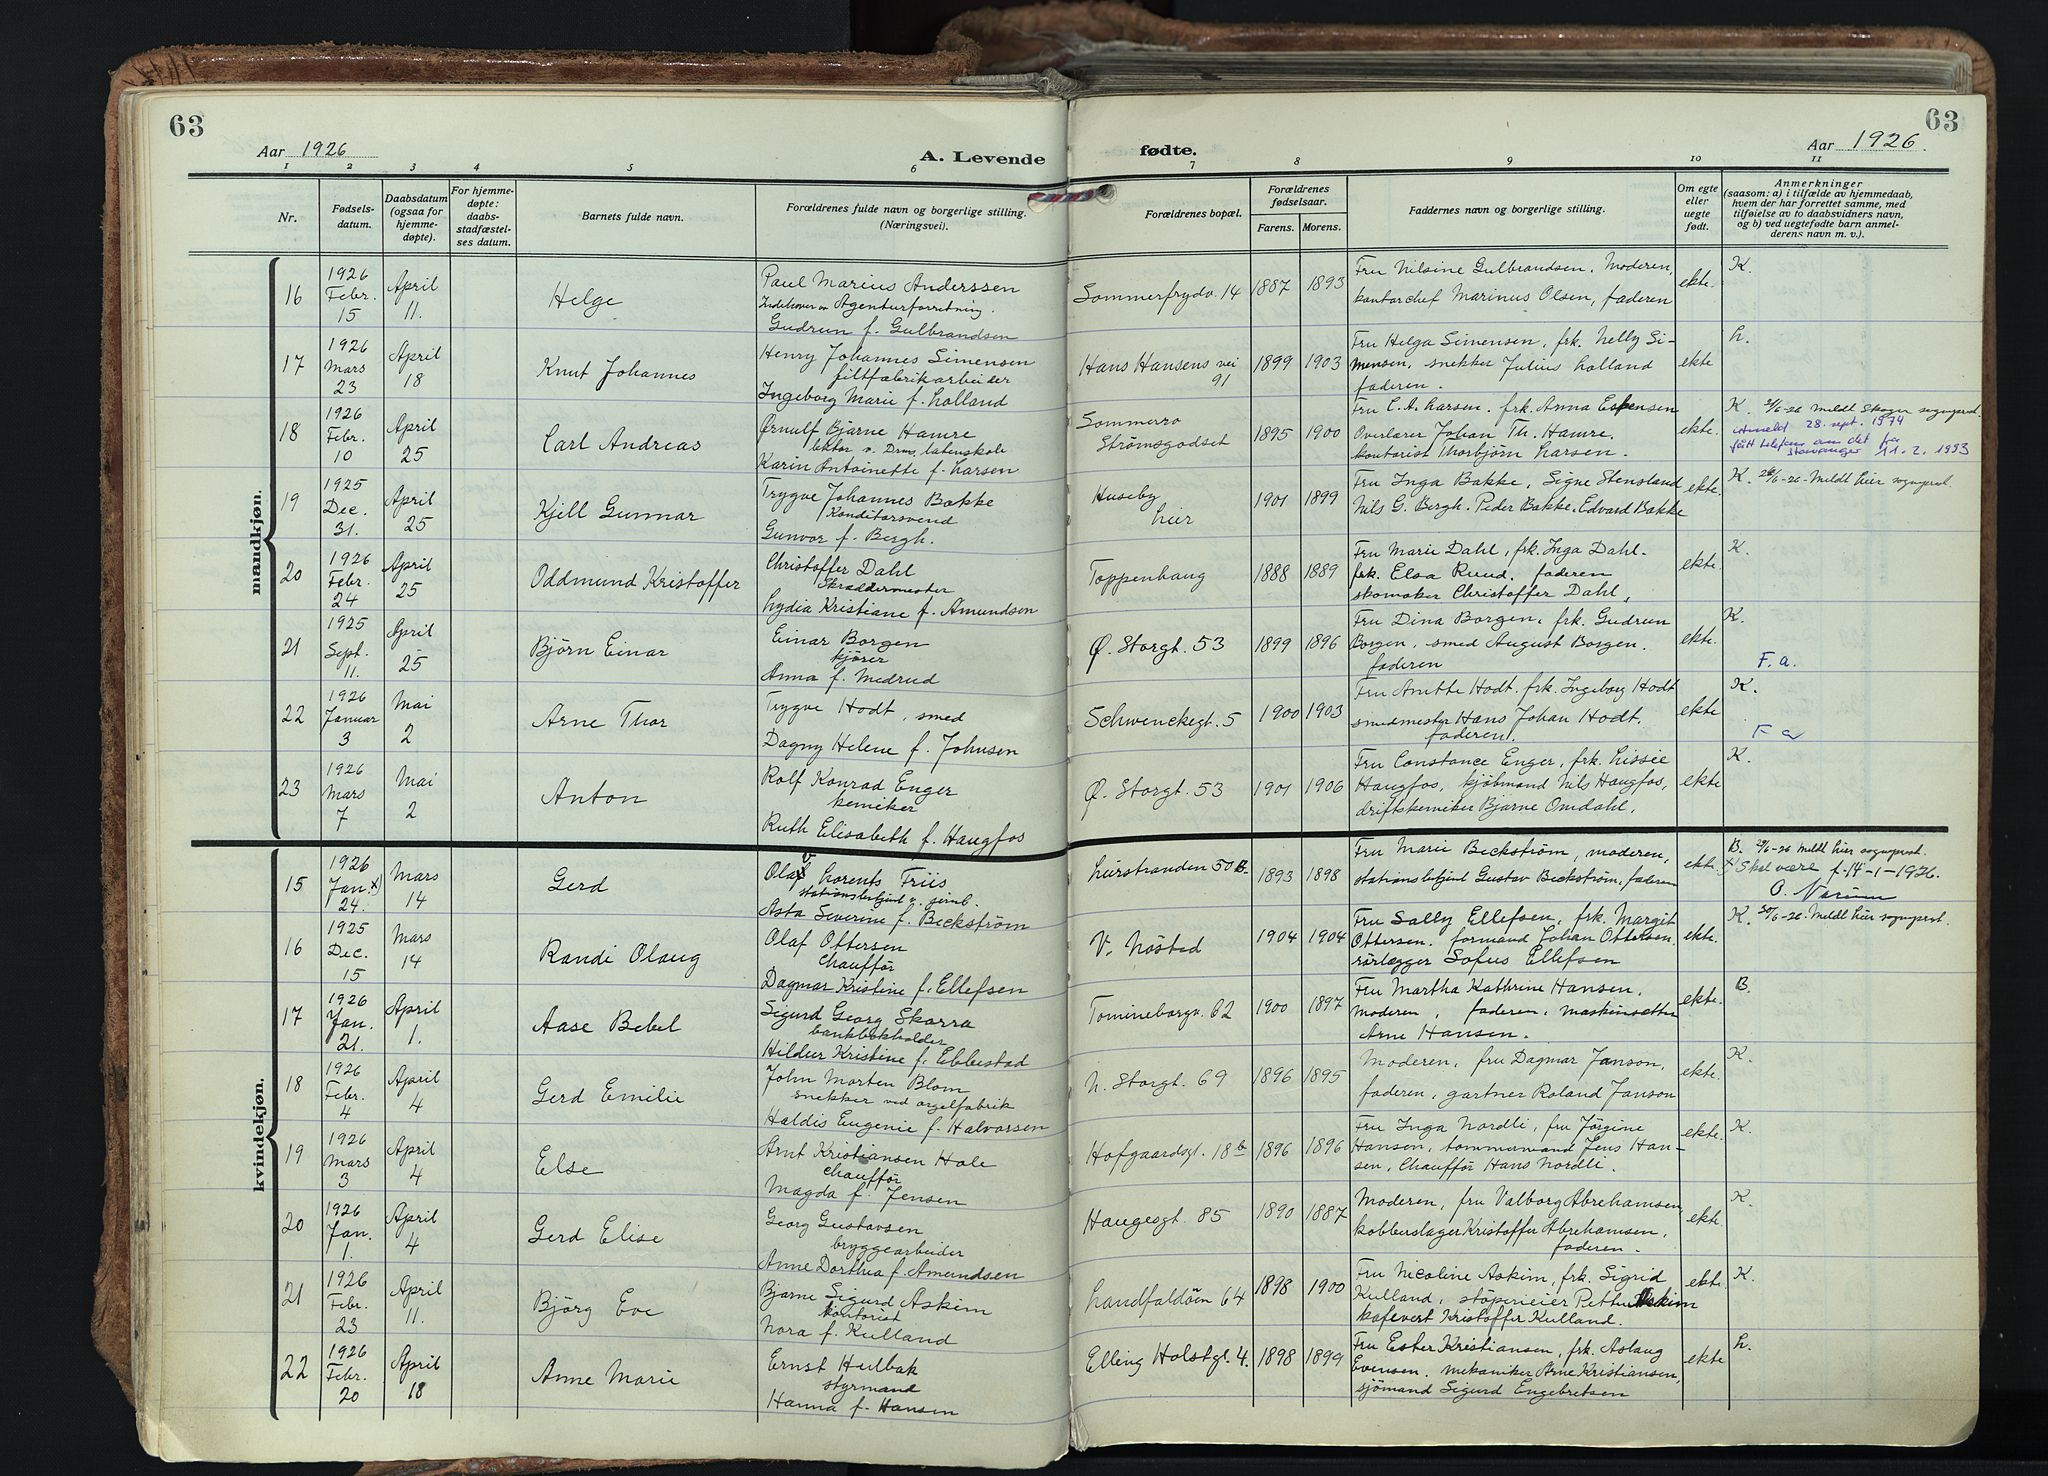 63
63
Aar 1926
A. Levende
fødte.
Aar 1926.
1 2 3 4 5 6 7 8 9 10 11
Nr.
Fødsels-
datum.
Daabsdatum
(ogsaa for
hjemme-
døpte).
For hjemme-
døpte:
daabs-
stadfæstel-
ses datum.
Barnets fulde navn.
Forældrenes fulde navn og borgerlige stilling.
(Næringsvei).
Forældrenes bopæl.
Forældrenes
fødselsaar.
Farens. Morens.
Faddernes navn og borgerlige stilling.
Om egte
eller
uegte
født.
Anmerkninger
(saasom: a) i tilfælde av hjemmedaab,
hvem der har forrettet samme, med
tilføielse av to daabsvidners navn,
og b) ved uegtefødte barn anmel-
derens navn m. v.).
mandkjøn.
16
1926
Febr.
15
April
11.
Helge
Paul Marius Anderssen
Indehaver av Agenturforretning.
Gudrun f. Gulbrandsen
Sommerfrydv. 14
1887 1893
Fru Nilsine Gulbrandsen, Moderen,
kontorchef Marinus Olsen, faderen
ekte.
K.
17
1926
Mars
23
April
18
Knut Johannes
Henry Johannes Simensen
filtfabrikarbeider
Ingeborg Marie f. Lolland
Hans Hansens vei
91
1899 1903
Fru Helga Simensen, frk. Nelly Si-
mensen, snekker Julius Lolland
faderen.
ekte
L.
18
1926
Febr.
10
April
25
Carl Andreas
Ørnulf Bjarne Hamre
lektor v. Drms. latinskole
Karin Antoinette f. Larsen
Sommerro
Strømsgodset
1895 1900
Fru C. A. Larsen. frk. Anna Espensen
Overlærer Johan Th. Hamre.
kontorist Thorbjørn Larsen.
ekte.
K. 26/6-26 Meldt Skoger sogneprest.
Utmeldt 28. sept. 1974
fått telefon om det fra
Stavanger 11. 2. 1993
19
1925
Dec.
31.
April
25
Kjell Gunnar
Trygve Johannes Bakke
Konditorsvend
Gunvor f. Bergh.
Huseby
hier
1901 1899
Fru Inga Bakke, Signe Stensland
Nils G. Bergh. Peder Bakke. Edvard Bakke
ekte
K. 26/6-26- Meldt hier sogneprest.
20
1926
Febr.
24
April
25
Oddmund Kristoffer
Christoffer Dahl
Skraddermester
Lydia Kristiane f. Amundsen
Toppenhaug
1888 1889
Fru Marie Dahl, frk. Inga Dahl.
frk. Elsa Ruud. faderen
skomaker Christoffer Dahl,
ekte.
K.
21
1925
Sept.
11.
April
25
Bjørn Einar
Einar Borgen
kjører
Anna f. Medrud
Ø. Storgt. 53
1899 1896
Fru Dina Borgen, frk. Gudrun
Borgen, smed August Borgen.
faderen
ekte.
K.
F. a.
22
1926
Januar
3
Mai
2
Arne Thor
Trygve Hodt, smed
Dagny Helene f. Johnsen
Schwenckegt. 5
1900 1903
Fru Anette Hodt. frk. Ingeborg Hodt
smedmester Hans Johan Hodt.
faderen.
ekte
K.
F a
23
1926
Mars
7
Mai
2
Anton
Rolf Konrad Enger
kemiker
Ruth Elisabeth f. Haugfos
Ø. Storgt. 53
1901 1906
Fru Constance Enger, frk. Lissie
Haugfos, kjøbmand Nils Haugfos,
driftskemiker Bjarne Omdahl.
ekte
K.
kvindekjøn.
15
1926
Jan. x)
24.
Mars
14
Gerd
Olav Lorents Friis
stationsbetjent v. jernb.
Asta Severine f. Beckstrøm
Lierstranden 50 B.
1893 1898
Fru Marie Beckstrøm, moderen,
stationsbetjent Gustav Beckstrøm, faderen
ekte.
B. 29/6-26 Meldt hier sogneprest.
x Skal være f. 14-1-1926.
O. Narum
16
1925
Dec.
15
Mars
14
Randi Olaug
Olaf Ottersen
Chauffør
Dagmar Kristine f. Ellefsen
V. Nøsted
1904 1904
Fru Sally Ellefsen, frk. Margit
Ottersen. formand Johan Ottersen.
rørlegger Sofus Ellefsen
ekte.
K. 30/6-26. Meldt hier sogneprest.
17
1926
Jan.
21.
April
1.
Aase Bebel
Sigurd Georg Skorra
bankbokholder
Hildur Kristine f. Ebbestad
Tomineborgv. 62
1900 1897
Fru Martha Kathrine Hansen.
Moderen, faderen, maskinsætter
Arne Hansen.
ekte.
B.
18
1926
Febr.
4
April
4
Gerd Emilie
John Morten Blom
snekker ved orgelfabrik
Haldis Eugenie f. Halvorsen
N. Storgt. 69
1896 1895
Moderen, fru Dagmar Janson,
faderen, gartner Roland Janson
ekte.
K.
19
1926
Mars
3
April
4
Else
Arnt Kristiansen Hole
Chauffør
Magda f. Jensen
Hofgaardsgt. 18 b
1896 1896
Fru Inga Nordli, fru Jørgine
Hansen, tømmermand Jens Han-
sen, Chauffør Hans Nordli.
ekte.
K.
20
1926
Jan.
1.
April
4
Gerd Elise
Georg Gustavsen
bryggearbeider
Anne Dorthea f. Amundsen
Haugesgt. 85
1890 1887
Moderen, fru Valborg Abrehamsen
kobberslager Kristoffer Abrehamsen,
faderen.
ekte
K.
21
1926
Febr.
23
April
11.
Bjørg Eve
Bjarne Sigurd Askim
kontorist
Nora f. Kulland
Landfaldøen 64
1898 1900
Fru Nicoline Askim, frk. Sigrid
Kulland, støperieier Petter Askim
kafevert Kristoffer Kulland.
ekte
K.
22
1926
Febr.
20
April
18
Anne Marie
Ernst Hulbak
styrmand
Hanna f. Hansen
Elling Holstgt. 4.
1898 1899
Fru Ester Kristiansen, frk. Aslaug
Evensen. mekaniker Arne Kristiansen,
sjømand Sigurd Engebretsen
ekte
L.